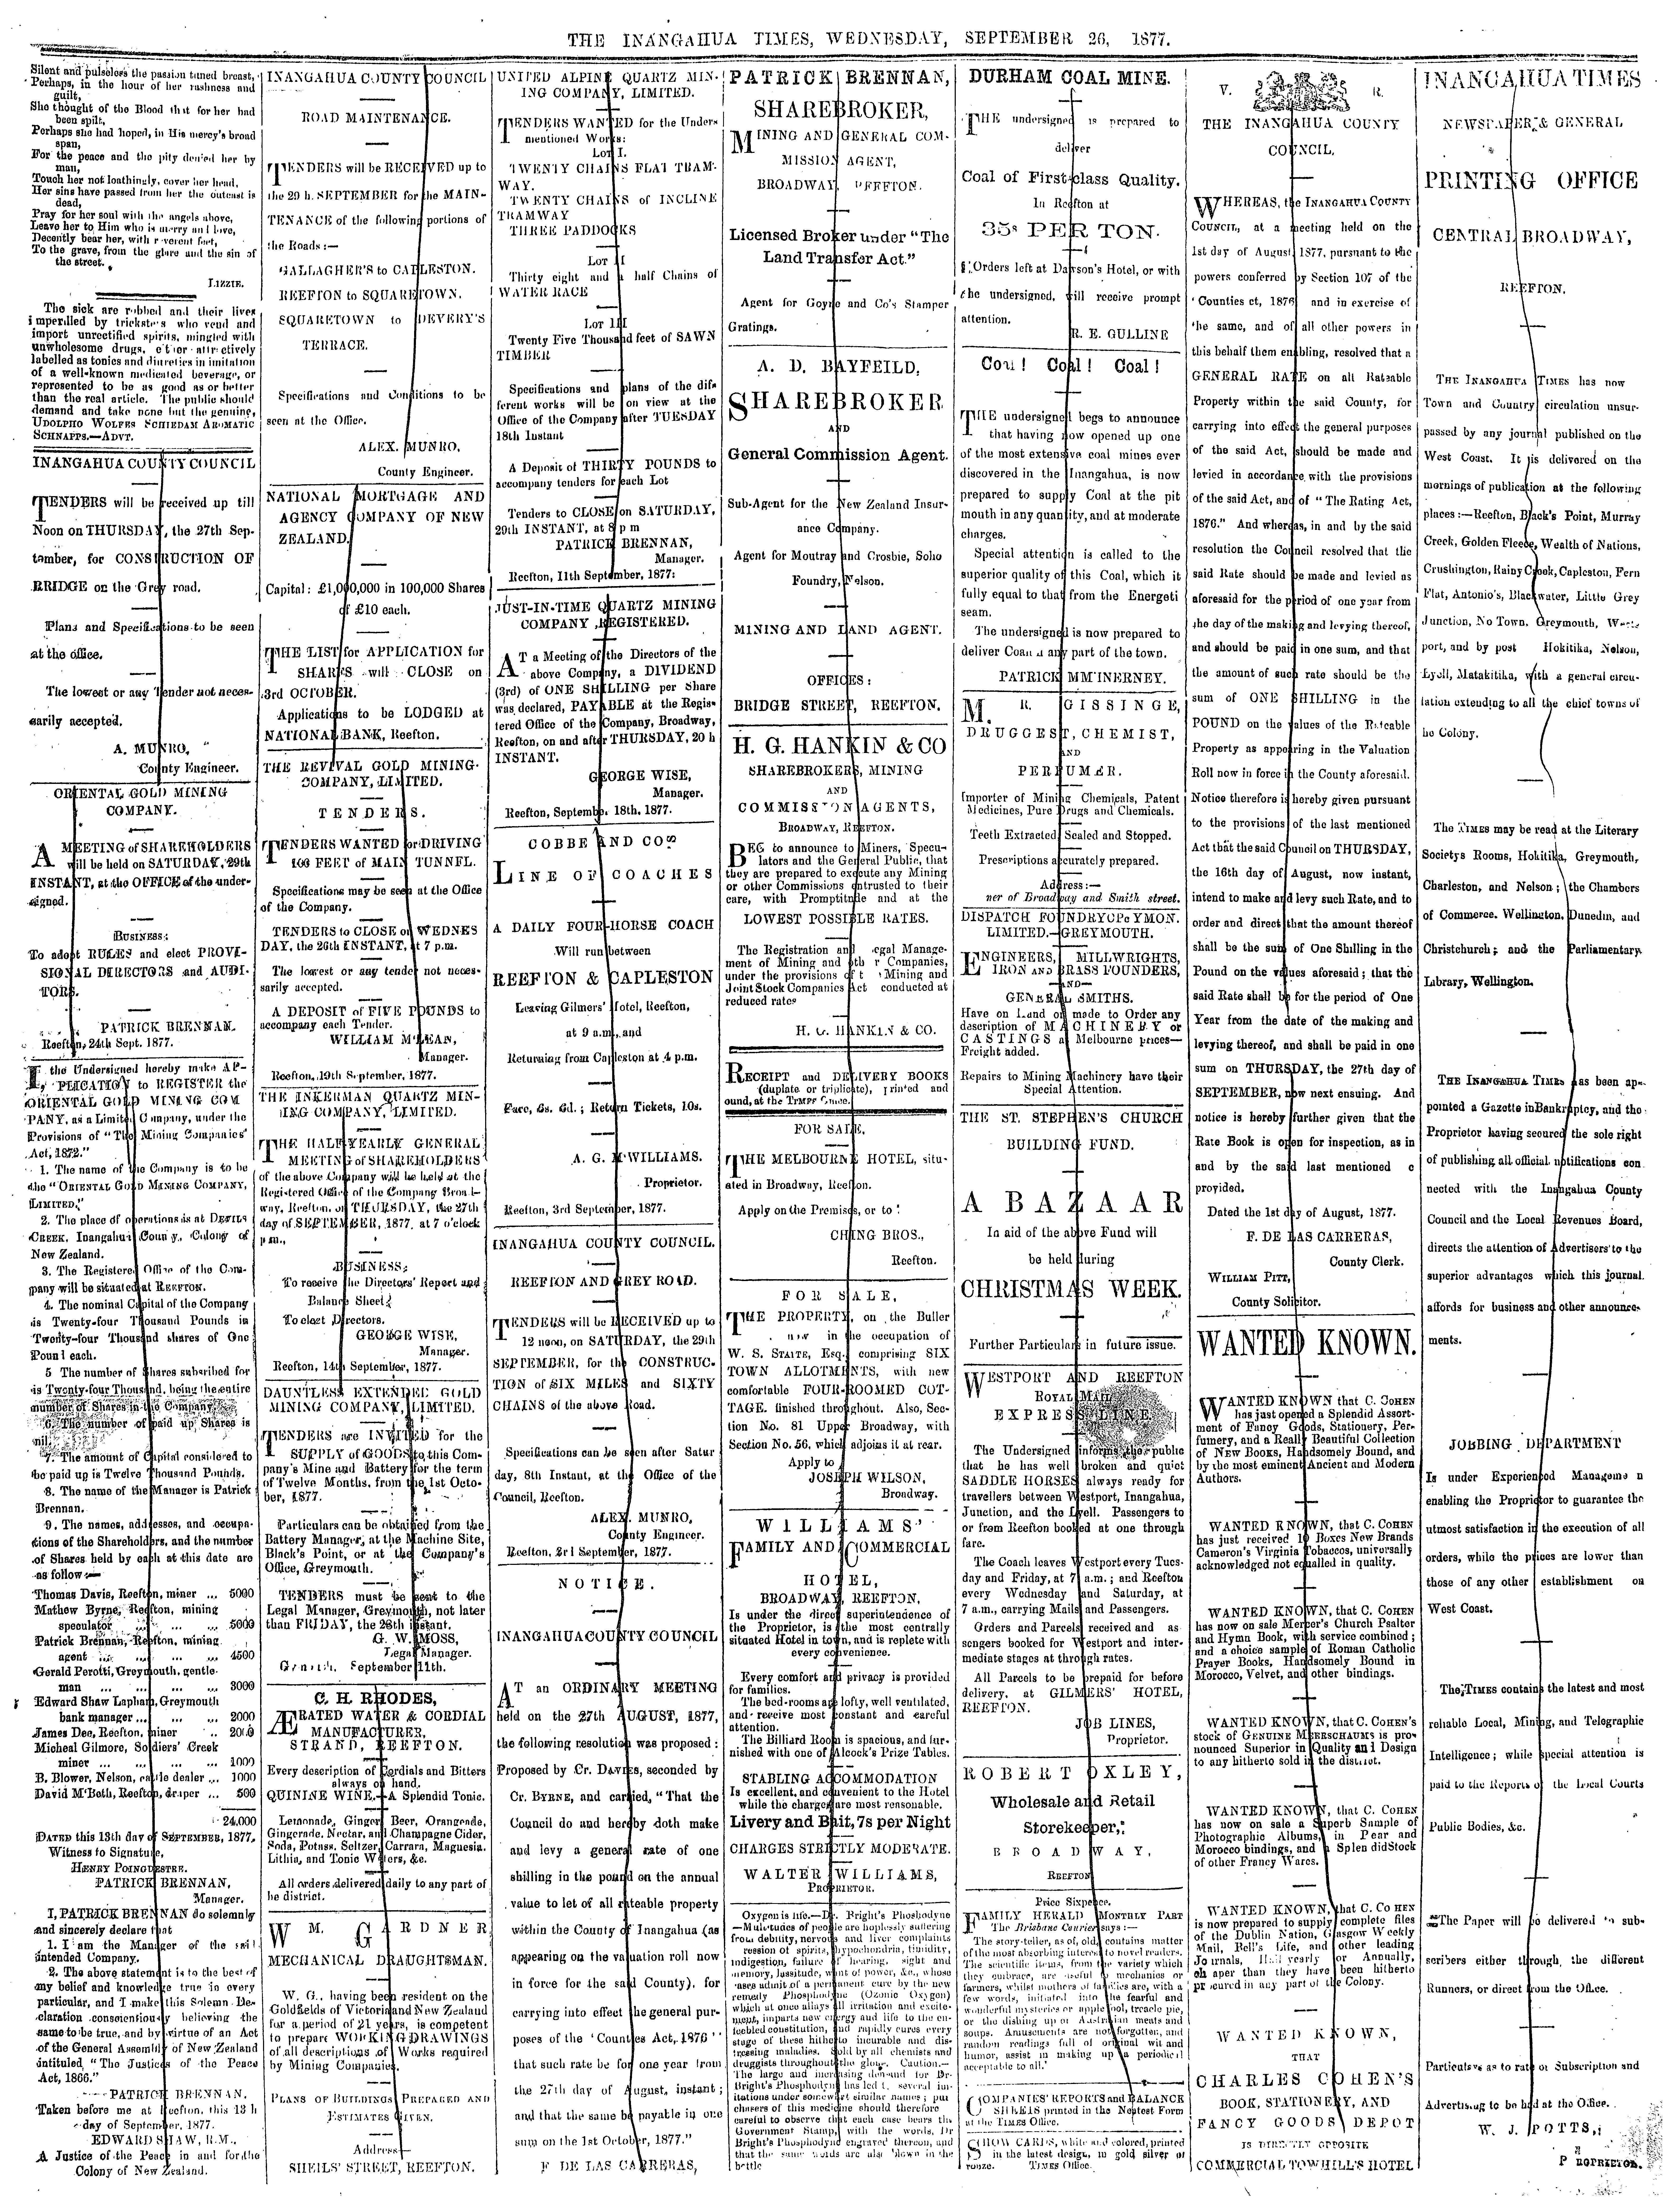 THE INANGAHUA TIMES, WEDNESDAY, SEPTEMBER 26, 1877.
Silent and pulseless the passion tuned breast,
Perhaps, in the hour of her rashness and
guilt,
She thought of the Blood that for her had
been spilt,
Perhaps she had hoped, in His mercy's broad
span,
For the peace and the pity denied her by
man,
Touch her not loathingly, cover her head,
Her sins have passed from her the outcast is
dead,
Pray for her soul with the angels above,
Leave her to Him who is mercy and love,
Decently bear her, with reverent feet,
To the grave, from the glare and the sin of
the street.
LIZZIE.
The sick are robbed and their lives
imperilled by tricksters who vend and
import unrectified spirits, mingled with
unwholesome drugs, other attractively
labelled as tonics and diuretics in imitation
of a well-known medicated beverage, or
represented to be as good as or better
than the real article. The public should
demand and take none but the genuine,
UDOLPHO WOLFES SCHIEDAM AROMATIC
SCHNAPPS.—ADVT.
INANGAHUA COUNTY COUNCIL
TENDERS will be received up till
Noon on THURSDAY, the 27th Sep-
tamber, for CONSTRUCTION OF
BRIDGE on the Grey road.
Plans and Specifications to be seen
at the office.
The lowest or any Tender not neces-
sarily accepted.
A. MUNRO,
County Engineer.
ORIENTAL GOLD MINING
COMPANY.
A MEETING of SHAREHOLDERS
will be held on SATURDAY, 29th
INSTANT, at the OFFICE of the under-
signed.
BUSINESS:
To adopt RULES and elect PROVI-
SIONAL DIRECTORS and AUDI-
TORS.
PATRICK BRENNAN.
Reefton, 24th Sept. 1877.
I, the Undersigned hereby make AP-
PLICATION to REGISTER the
ORIENTAL GOLD MINING COM
PANY, as a Limited Company, under the
Provisions of "The Mining Companies'
Act, 1872."
1. The name of the Company is to be
the "ORIENTAL GOLD MINING COMPANY,
LIMITED,"
2. The place of operations is at DEVILS
CREEK, Inangahua County, Colony of
New Zealand.
3. The Registered Office of the Com-
pany will be situated at REEFTON.
4. The nominal Capital of the Company
is Twenty-four Thousand Pounds in
Twenty-four Thousand shares of One
Pound each.
5 The number of Shares subsribed for
is Twenty-four Thousand, being the entire
number of Shares in the Company.
6. The number of paid up Shares is
nil.
7. The amount of Capital considered to
be paid up is Twelve Thousand Pounds.
8. The name of the Manager is Patrick
Brennan.
9. The names, addresses, and occupa-
tions of the Shareholders, and the number
of Shares held by each at this date are
as follow:—
Thomas Davis, Reefton, miner ... 5000
Mathew Byrne, Reefton, mining
speculator ... ... ... 5000
Patrick Brennan, Reefton, mining
agent ... ... ... 4500
Gerald Perotti, Greymouth, gentle-
man ... ... ... ... 3000
Edward Shaw Lapham, Greymouth
bank manager ... ... ... 2000
James Dee, Reefton, miner .. 2000
Micheal Gilmore, Soldiers' Creek
miner ... ... ... ... 1000
B. Blower, Nelson, cattle dealer ... 1000
David M'Beth, Reefton, draper ... 500
24,000
DATED this 13th day of SEPTEMBER, 1877.
Witness to Signature,
HENRY POINGDESTRE.
PATRICK BRENNAN,
Manager.
I, PATRICK BRENNAN do solemnly
and sincerely declare that
1. I am the Manager of the said
intended Company.
2. The above statement is to the best of
my belief and knowledge true in every
particular, and I make this Solemn De-
claration conscientiously believing the
same to be true, and by virtue of an Act
of the General Assembly of New Zealand
intituled, "The Justices of the Peace
Act, 1866."
PATRICK BRENNAN.
Taken before me at Reefton, this 13 h
day of September, 1877.
EDWARD SHAW, R.M.,
A Justice of the Peace in and for the
Colony of New Zealand.
INANGAHUA COUNTY COUNCIL
ROAD MAINTENANCE.
TENDERS will be RECEIVED up to
the 29 h SEPTEMBER for the MAIN-
TENANCE of the following portions of
the Roads:—
GALLAGHER'S to CAPLESTON.
REEFTON to SQUARETOWN.
SQUARETOWN to DEVERY'S
TERRACE.
Specifications and Conditions to be
seen at the Office.
ALEX. MUNRO,
County Engineer.
NATIONAL MORTGAGE AND
AGENCY COMPANY OF NEW
ZEALAND.
Capital: £1,000,000 in 100,000 Shares
of £10 each.
THE LIST for APPLICATION for
SHARES will CLOSE on
3rd OCTOBER.
Applications to be LODGED at
NATIONAL BANK, Reefton.
THE REVIVAL GOLD MINING
COMPANY, LIMITED.
TENDERS.
TENDERS WANTED for DRIVING
100 FEET of MAIN TUNNEL.
Specifications may be seen at the Office
of the Company.
TENDERS to CLOSE on WEDNES
DAY, the 26th INSTANT, at 7 p.m.
The lowest or any tender not neces-
sarily accepted.
A DEPOSIT of FIVE POUNDS to
accompany each Tender.
WILLIAM M'LEAN,
Manager.
Reefton, 19th September, 1877.
THE INKERMAN QUARTZ MIN-
ING COMPANY, LIMITED.
THE HALF-YEARLY GENERAL
MEETING of SHAREHOLDERS
of the above Company will be held at the
Registered Office of the Company Broad-
way, Reefton, on THURSDAY, the 27th
day of SEPTEMBER, 1877, at 7 o'clock
p m.,
BUSINESS:
To receive the Directors' Report and
Balance Sheet;
To elect Directors.
GEORGE WISE,
Manager.
Reefton, 14th September, 1877.
DAUNTLESS EXTENDED GOLD
MINING COMPANY, LIMITED.
TENDERS are INVITED for the
SUPPLY of GOODS to this Com-
pany's Mine and Battery for the term
of Twelve Months, from the 1st Octo-
ber, 1877.
Particulars can be obtained from the
Battery Manager, at the Machine Site,
Black's Point, or at the Company's
Office, Greymouth.
TENDERS must be sent to the
Legal Manager, Greymouth, not later
than FRIDAY, the 28th instant.
G. W. MOSS,
Legal Manager.
September 11th.
C. H. RHODES,
ÆRATED WATER & CORDIAL
MANUFACTURER,
STRAND, REEFTON.
Every description of Cordials and Bitters
always on hand.
QUININE WINE,—A Splendid Tonic.
Lemonade, Ginger Beer, Orangeade,
Gingerade, Nectar, and Champagne Cider,
Soda, Potass, Seltzer, Carrara, Magnesia.
Lithia, and Tonic Waters, &c.
All orders delivered daily to any part of
he district.
WM. GARDNER
MECHANICAL DRAUGHTSMAN.
W. G., having been resident on the
Goldfields of Victoria and New Zealand
for a period of 21 years, is competent
to prepare WORKING DRAWINGS
of all descriptions of Works required
by Mining Companies.
PLANS OF BUILDINGS PREPARED AND
ESTIMATES GIVEN.
Address—
SHEILS' STREET, REEFTON.
UNITED ALPINE QUARTZ MIN-
ING COMPANY, LIMITED.
TENDERS WANTED for the Under-
mentioned Works:
LOT I.
TWENTY CHAINS FLAT TRAM-
WAY.
TWENTY CHAINS of INCLINE
TRAMWAY
THREE PADDOCKS
LOT II
Thirty eight and a half Chains of
WATER RACE
LOT III
Twenty Five Thousand feet of SAWN
TIMBER
Specifications and plans of the dif-
ferent works will be on view at the
Office of the Company after TUESDAY
18th Instant
A Deposit of THIRTY POUNDS to
accompany tenders for each Lot
Tenders to CLOSE on SATURDAY,
29th INSTANT, at 8 p m
PATRICK BRENNAN,
Manager.
Reefton, 11th September, 1877:
JUST-IN-TIME QUARTZ MINING
COMPANY REGISTERED.
AT a Meeting of the Directors of the
above Company, a DIVIDEND
(3rd) of ONE SHILLING per Share
was declared, PAYABLE at the Regis-
tered Office of the Company, Broadway,
Reefton, on and after THURSDAY, 20 h
INSTANT.
GEORGE WISE,
Manager.
Reefton, September 18th, 1877.
COBBE AND COS
LINE OF COACHES
A DAILY FOUR-HORSE COACH
Will run between
REEFTON & CAPLESTON
Leaving Gilmers' Hotel, Reefton,
at 9 a.m. and
Returning from Capleston at 4 p.m.
Fare, 6s. 6d.; Return Tickets, 10s.
A. G. M'WILLIAMS.
Proprietor.
Reefton, 3rd September, 1877.
INANGAHUA COUNTY COUNCIL.
REEFTON AND GREY ROAD.
TENDERS will be RECEIVED up to
12 noon, on SATURDAY, the 29th
SEPTEMBER, for the CONSTRUC-
TION of SIX MILES and SIXTY
CHAINS of the above Road.
Specifications can be seen after Satur
day, 8th Instant, at the Office of the
Council, Reefton.
ALEX. MUNRO,
County Engineer.
Reefton, 3rd September, 1877.
NOTICE.
INANGAHUA COUNTY COUNCIL
AT an ORDINARY MEETING
held on the 27th AUGUST, 1877,
the following resolution was proposed:
Proposed by Cr. DAVIES, seconded by
Cr. BYRNE, and carried, "That the
Council do and hereby doth make
and levy a general rate of one
shilling in the pound on the annual
value to let of all rateable property
within the County of Inangahua (as
appearing on the valuation roll now
in force in the said County), for
carrying into effect the general pur-
poses of the 'Counties Act, 1876'
that such rate be for one year from
the 27th day of August, instant;
and that the same be payable in one
sum on the 1st October, 1877."
F DE LAS CARRERAS,
PATRICK BRENNAN,
SHAREBROKER,
MINING AND GENERAL COM-
MISSION AGENT,
BROADWAY, REEFTON.
Licensed Broker under "The
Land Transfer Act."
Agent for Goyne and Co's Stamper
Gratings.
A. D. BAYFEILD,
SHAREBROKER
AND
General Commission Agent.
Sub-Agent for the New Zealand Insur-
ance Company.
Agent for Moutray and Crosbie, Soho
Foundry, Nelson.
MINING AND LAND AGENT.
OFFICES:
BRIDGE STREET, REEFTON.
H. G. HANKIN & CO
SHAREBROKERS, MINING
AND
COMMISSION AGENTS,
BROADWAY, REEFTON.
BEG to announce to Miners, Specu-
lators and the General Public, that
they are prepared to execute any Mining
or other Commissions entrusted to their
care, with Promptitude and at the
LOWEST POSSIBLE RATES.
The Registration and Legal Manage-
ment of Mining and other Companies,
under the provisions of the Mining and
Joint Stock Companies Act conducted at
reduced rates
H. G. HANKIN & CO.
RECEIPT and DELIVERY BOOKS
(duplate or triplicate), printed and
ound, at the TIMES Office.
FOR SALE,
THE MELBOURNE HOTEL, situ-
ated in Broadway, Reefton.
Apply on the Premises, or to
CHING BROS.,
Reefton.
FOR SALE,
THE PROPERTY, on the Buller
now in the occupation of
W. S. STAITE, Esq., comprising SIX
TOWN ALLOTMENTS, with new
comfortable FOUR-ROOMED COT-
TAGE. finished throughout. Also, Sec-
tion No. 81 Upper Broadway, with
Section No. 56, which adjoins it at rear.
Apply to
JOSEPH WILSON,
Broadway.
WILLIAMS'
FAMILY AND COMMERCIAL
HOTEL,
BROADWAY, REEFTON.
Is under the direct superintendence of
the Proprietor, is the most centrally
situated Hotel in town, and is replete with
every convenience.
Every comfort and privacy is provided
for families.
The bed-rooms are lofty, well ventilated,
and receive most constant and careful
attention.
The Billiard Room is spacious, and fur-
nished with one of Alcock's Prize Tables.
STABLING ACCOMMODATION
Is excellent, and convenient to the Hotel
while the charges are most reasonable.
Livery and Bait, 7s per Night
CHARGES STRICTLY MODERATE.
WALTER WILLIAMS,
PROPRIETOR.
Oxygen is life.—Dr. Bright's Phosphodyne
—Multitudes of people are hoplessly suffering
from debility, nervous and liver complaints
ression of spirits, hypochondria, timidity,
indigestion, failure of hearing, sight and
memory, lassitude, want of power, &c., whose
cases admit of a permanent cure by the new
remedy Phosphodyne (Ozonic Oxygen)
which at once allays all irritation and excite-
ment, imparts new energy and life to the en-
feebled constitution, and rapidly cures every
stage of these hitherto incurable and dis-
tressing maladies. Sold by all chemists and
druggists throughout the globe. Caution.—
The large and increasing demand for Dr
Bright's Phosphodyne has led t. several im-
itations under somewhat similar names; pur
chasers of this medicine should therefore
careful to observe that each case bears the
Government Stamp, with the words, Dr
Bright's Phosphodyne engraved thereon, and
that the same words are also blown in the
bottle
DURHAM COAL MINE.
THE undersigned is prepared to
deliver
Coal of First-class Quality.
In Reefton at
35s PER TON.
Orders left at Dawson's Hotel, or with
the undersigned, will receive prompt
attention.
R. E. GULLINE
Coal! Coal! Coal!
THE undersigned begs to announce
that having now opened up one
of the most extensive coal mines ever
discovered in the Inangahua, is now
prepared to supply Coal at the pit
mouth in any quantity, and at moderate
charges.
Special attention is called to the
superior quality of this Coal, which it
fully equal to that from the Energeti
seam.
The undersigned is now prepared to
deliver Coal any part of the town.
PATRICK M'INERNEY.
M. R. GISSINGE,
DRUGGEST, CHEMIST,
AND
PERFUMER.
Importer of Mining Chemicals, Patent
Medicines, Pure Drugs and Chemicals.
Teeth Extracted, Scaled and Stopped.
Prescriptions accurately prepared.
Address:—
ner of Broadway and Smith street.
DISPATCH FOUNDRY
LIMITED.—GREYMOUTH.
ENGINEERS, MILLWRIGHTS,
IRON AND BRASS FOUNDERS,
—AND—
GENERAL SMITHS.
Have on hand or made to Order any
description of MACHINERY or
CASTINGS at Melbourne prices—
Freight added.
Repairs to Mining Machinery have their
Special Attention.
THE ST. STEPHEN'S CHURCH
BUILDING FUND.
A BAZAAR
In aid of the above Fund will
be held during
CHRISTMAS WEEK.
Further Particulars in future issue.
WESTPORT AND REEFTON
ROYAL MAIL
EXPRESS LINE.
The Undersigned informs the public
that he has well broken and quiet
SADDLE HORSES always ready for
travellers between Westport, Inangahua,
Junction, and the Lyell. Passengers to
or from Reefton booked at one through
fare.
The Coach leaves Westport every Tues-
day and Friday, at 7 a.m.; and Reefton
every Wednesday and Saturday, at
7 a.m., carrying Mails and Passengers.
Orders and Parcels received and as
sengers booked for Westport and inter-
mediate stages at through rates.
All Parcels to be prepaid for before
delivery, at GILMERS' HOTEL,
REEFTON.
JOB LINES,
Proprietor.
ROBERT OXLEY,
Wholesale and Retail
Storekeeper,
BROADWAY,
REEFTON
Price Sixpence.
FAMILY HERALD MONTHLY PART
The Brisbane Courier says:—
The story-teller, as of, old, contains matter
of the most absorbing interest to novel readers.
The scientific items, from the variety which
they embrace, are useful to mechanics or
farmers, whilst mothers of families are, with a
few words, initiated into the fearful and
wonderful mysteries or apple ool, treacle pie,
or the dishing up of Australian meats and
soups. Amusements are not forgotten, and
random readings full of original wit and
humor, assist in making up a periodical
acceptable to all.'
COMPANIES' REPORTS and BALANCE
SHEETS printed in the Neatest Form
at the TIMES Office.
SHOW CARDS, white and colored, printed
in the latest design, in gold silver or
ronze. TIMES Office.
V. R.
THE INANGAHUA COUNTY
COUNCIL.
WHEREAS, the INANGAHUA COUNTY
COUNCIL, at a meeting held on the
1st day of August 1877, pursuant to the
powers conferred by Section 107 of the
'Counties ct, 1876 and in exercise of
the same, and of all other powers in
this behalf them enabling, resolved that a
GENERAL RATE on all Rateable
Property within the said County, for
carrying into effect the general purposes
of the said Act, should be made and
levied in accordance with the provisions
of the said Act, and of "The Rating Act,
1876." And whereas, in and by the said
resolution the Council resolved that the
said Rate should be made and levied as
aforesaid for the period of one year from
the day of the making and levying thereof,
and should be paid in one sum, and that
the amount of such rate should be the
sum of ONE SHILLING in the
POUND on the values of the Rateable
Property as appearing in the Valuation
Roll now in force in the County aforesaid.
Notice therefore is hereby given pursuant
to the provisions of the last mentioned
Act that the said Council on THURSDAY,
the 16th day of August, now instant,
intend to make and levy such Rate, and to
order and direct that the amount thereof
shall be the sum of One Shilling in the
Pound on the values aforesaid; that the
said Rate shall be for the period of One
Year from the date of the making and
levying thereof, and shall be paid in one
sum on THURSDAY, the 27th day of
SEPTEMBER, now next ensuing. And
notice is hereby further given that the
Rate Book is open for inspection, as in
and by the said last mentioned c
provided.
Dated the 1st day of August, 1877.
F. DE LAS CARRERAS,
County Clerk.
WILLIAM PITT,
County Solicitor.
WANTED KNOWN.
WANTED KNOWN that C. COHEN
has just opened a Splendid Assort-
ment of Fancy Goods, Stationery, Per-
fumery, and a Really Beautiful Collection
of New Books, Handsomely Bound, and
by the most eminent Ancient and Modern
Authors.
WANTED KNOWN, that C. COHEN
has just received 10 Boxes New Brands
Cameron's Virginia Tobaccos, universally
acknowledged not equalled in quality.
WANTED KNOWN, that C. COHEN
has now on sale Mercer's Church Psalter
and Hymn Book, with service combined;
and a choice sample of Roman Catholic
Prayer Books, Handsomely Bound in
Morocco, Velvet, and other bindings.
WANTED KNOWN, that C. COHEN'S
stock of GENUINE MEERSCHAUMS is pro-
nounced Superior in Quality and Design
to any hitherto sold in the district.
WANTED KNOWN, that C. COHEN
has now on sale a Superb Sample of
Photographic Albums, in Pear and
Morocco bindings, and a Splen did Stock
of other Francy Wares.
WANTED KNOWN, that C. CO HEN
is now prepared to supply complete files
of the Dublin Nation, Glasgow Weekly
Mail, Bell's Life, and other leading
Jo rnals, Half yearly or Annually,
ch aper than they have been hitherto
pr ocured in any part of the Colony.
WANTED KNOWN,
THAT
CHARLES COHEN'S
BOOK, STATIONERY, AND
FANCY GOODS DEPOT
IS DIRECTLY OPPOSITE
COMMERCIAL TOWHILL'S HOTEL
INANGAHUA TIMES
NEWSPAPER & GENERAL
PRINTING OFFICE
CENTRAL BROADWAY,
REEFTON.
THE INANGAHUA TIMES has now
Town and Country circulation unsur-
passed by any journal published on the
West Coast. It is delivered on the
mornings of publication at the following
places:—Reefton, Black's Point, Murray
Creek, Golden Fleece, Wealth of Nations,
Crushington, Rainy Creek, Capleston, Fern
Flat, Antonio's, Blackwater, Little Grey
Junction, No Town. Greymouth, West-
port, and by post Hokitika, Nelson,
Lyell, Matakitika, with a general circu-
lation extending to all the chief towns of
he Colony.
The TIMES may be read at the Literary
Societys Rooms, Hokitika, Greymouth,
Charleston, and Nelson; the Chambers
of Commerce. Wellington, Dunedin, and
Christchurch; and the Parliamentary
Library, Wellington.
THE INANGAHUA TIMES has been ap-
pointed a Gazette in Bankruptcy, and the
Proprietor having secured the sole right
of publishing all official notifications con
nected with the Inangahua County
Council and the Local Revenues Board,
directs the attention of Advertisers to the
superior advantages which this journal
affords for business and other announce-
ments.
JOBBING DEPARTMENT
Is under Experienced Manageme n
enabling the Proprietor to guarantee the
utmost satisfaction in the execution of all
orders, while the prices are lower than
those of any other establishment on
West Coast.
The TIMES contains the latest and most
reliable Local, Mining, and Telegraphic
Intelligence; while special attention is
paid to the Reports of the Local Courts
Public Bodies, &c.
The Paper will be delivered to sub-
scribers either through the different
Runners, or direct from the Office.
Particulars as to rate of Subscription and
Advertising to be had at the Office.
W. J. POTTS,
PROPRIETOR.